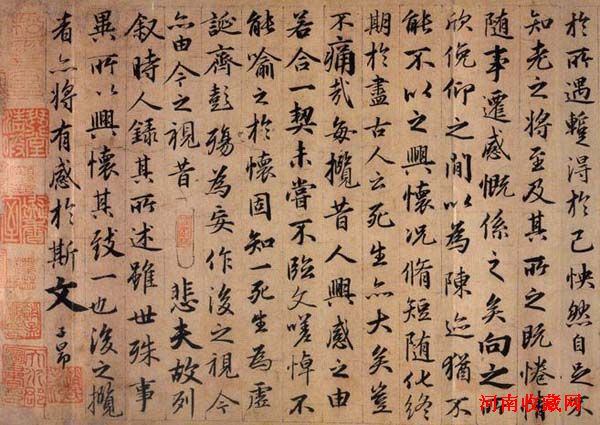 於所遇蹔得於己怏然自足不
知老之将至及其所之既惓情
随事遷感慨係之矣向之所
欣俛仰之間以為陳迹猶不
能不以之興懷况脩短随化終
期於盡古人云死生亦大矣豈
不痛哉每攬昔人興感之由
若合一契未嘗不臨文嗟悼不
能喻之於懷固知一死生為虛
誕齊彭殤為妄作後之視今
亦由今之視昔 悲夫故列
叙時人録其所述雖世殊事
異所以興懷其致一也後之攬
者亦将有感於斯文 子昂
河南收藏网